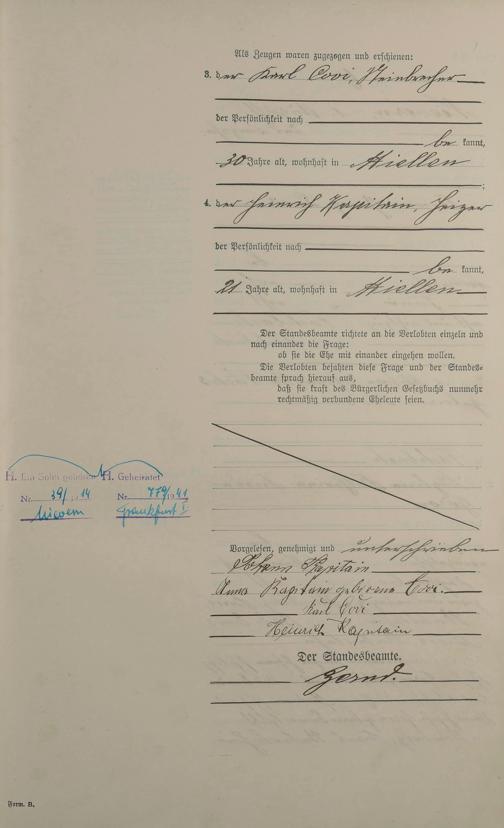 Als Zeugen waren zugezogen und erschienen:
3. der Karl Covi, Steinbrecher
der Persönlichkeit nach
be kannt,
30 Jahre alt, wohnhaft in Miellen
;
4. der Heinrich Kapitain, Heizer
der Persönlichkeit nach
be kannt,
21 Jahre alt, wohnhaft in Miellen
Der Standesbeamte richtete an die Verlobten einzeln und
nach einander die Frage:
ob sie die Ehe mit einander eingehen wollen.
Die Verlobten bejahten diese Frage und der Standes-
beamte sprach hierauf aus,
daß sie kraft des Bürgerlichen Gesetzbuchs nunmehr
rechtmäßig verbundene Eheleute seien.
H. Ein Sohn geboren H. Geheiratet
Nr. 39/1914 Nr. 779/1941
Nievern Frankfurt I
Vorgelesen, genehmigt und unterschrieben
Johann Kapitain
Anna Kapitain geborene Covi.
Karl Covi
Heinrich Kapitain
Der Standesbeamte.
Form. B.